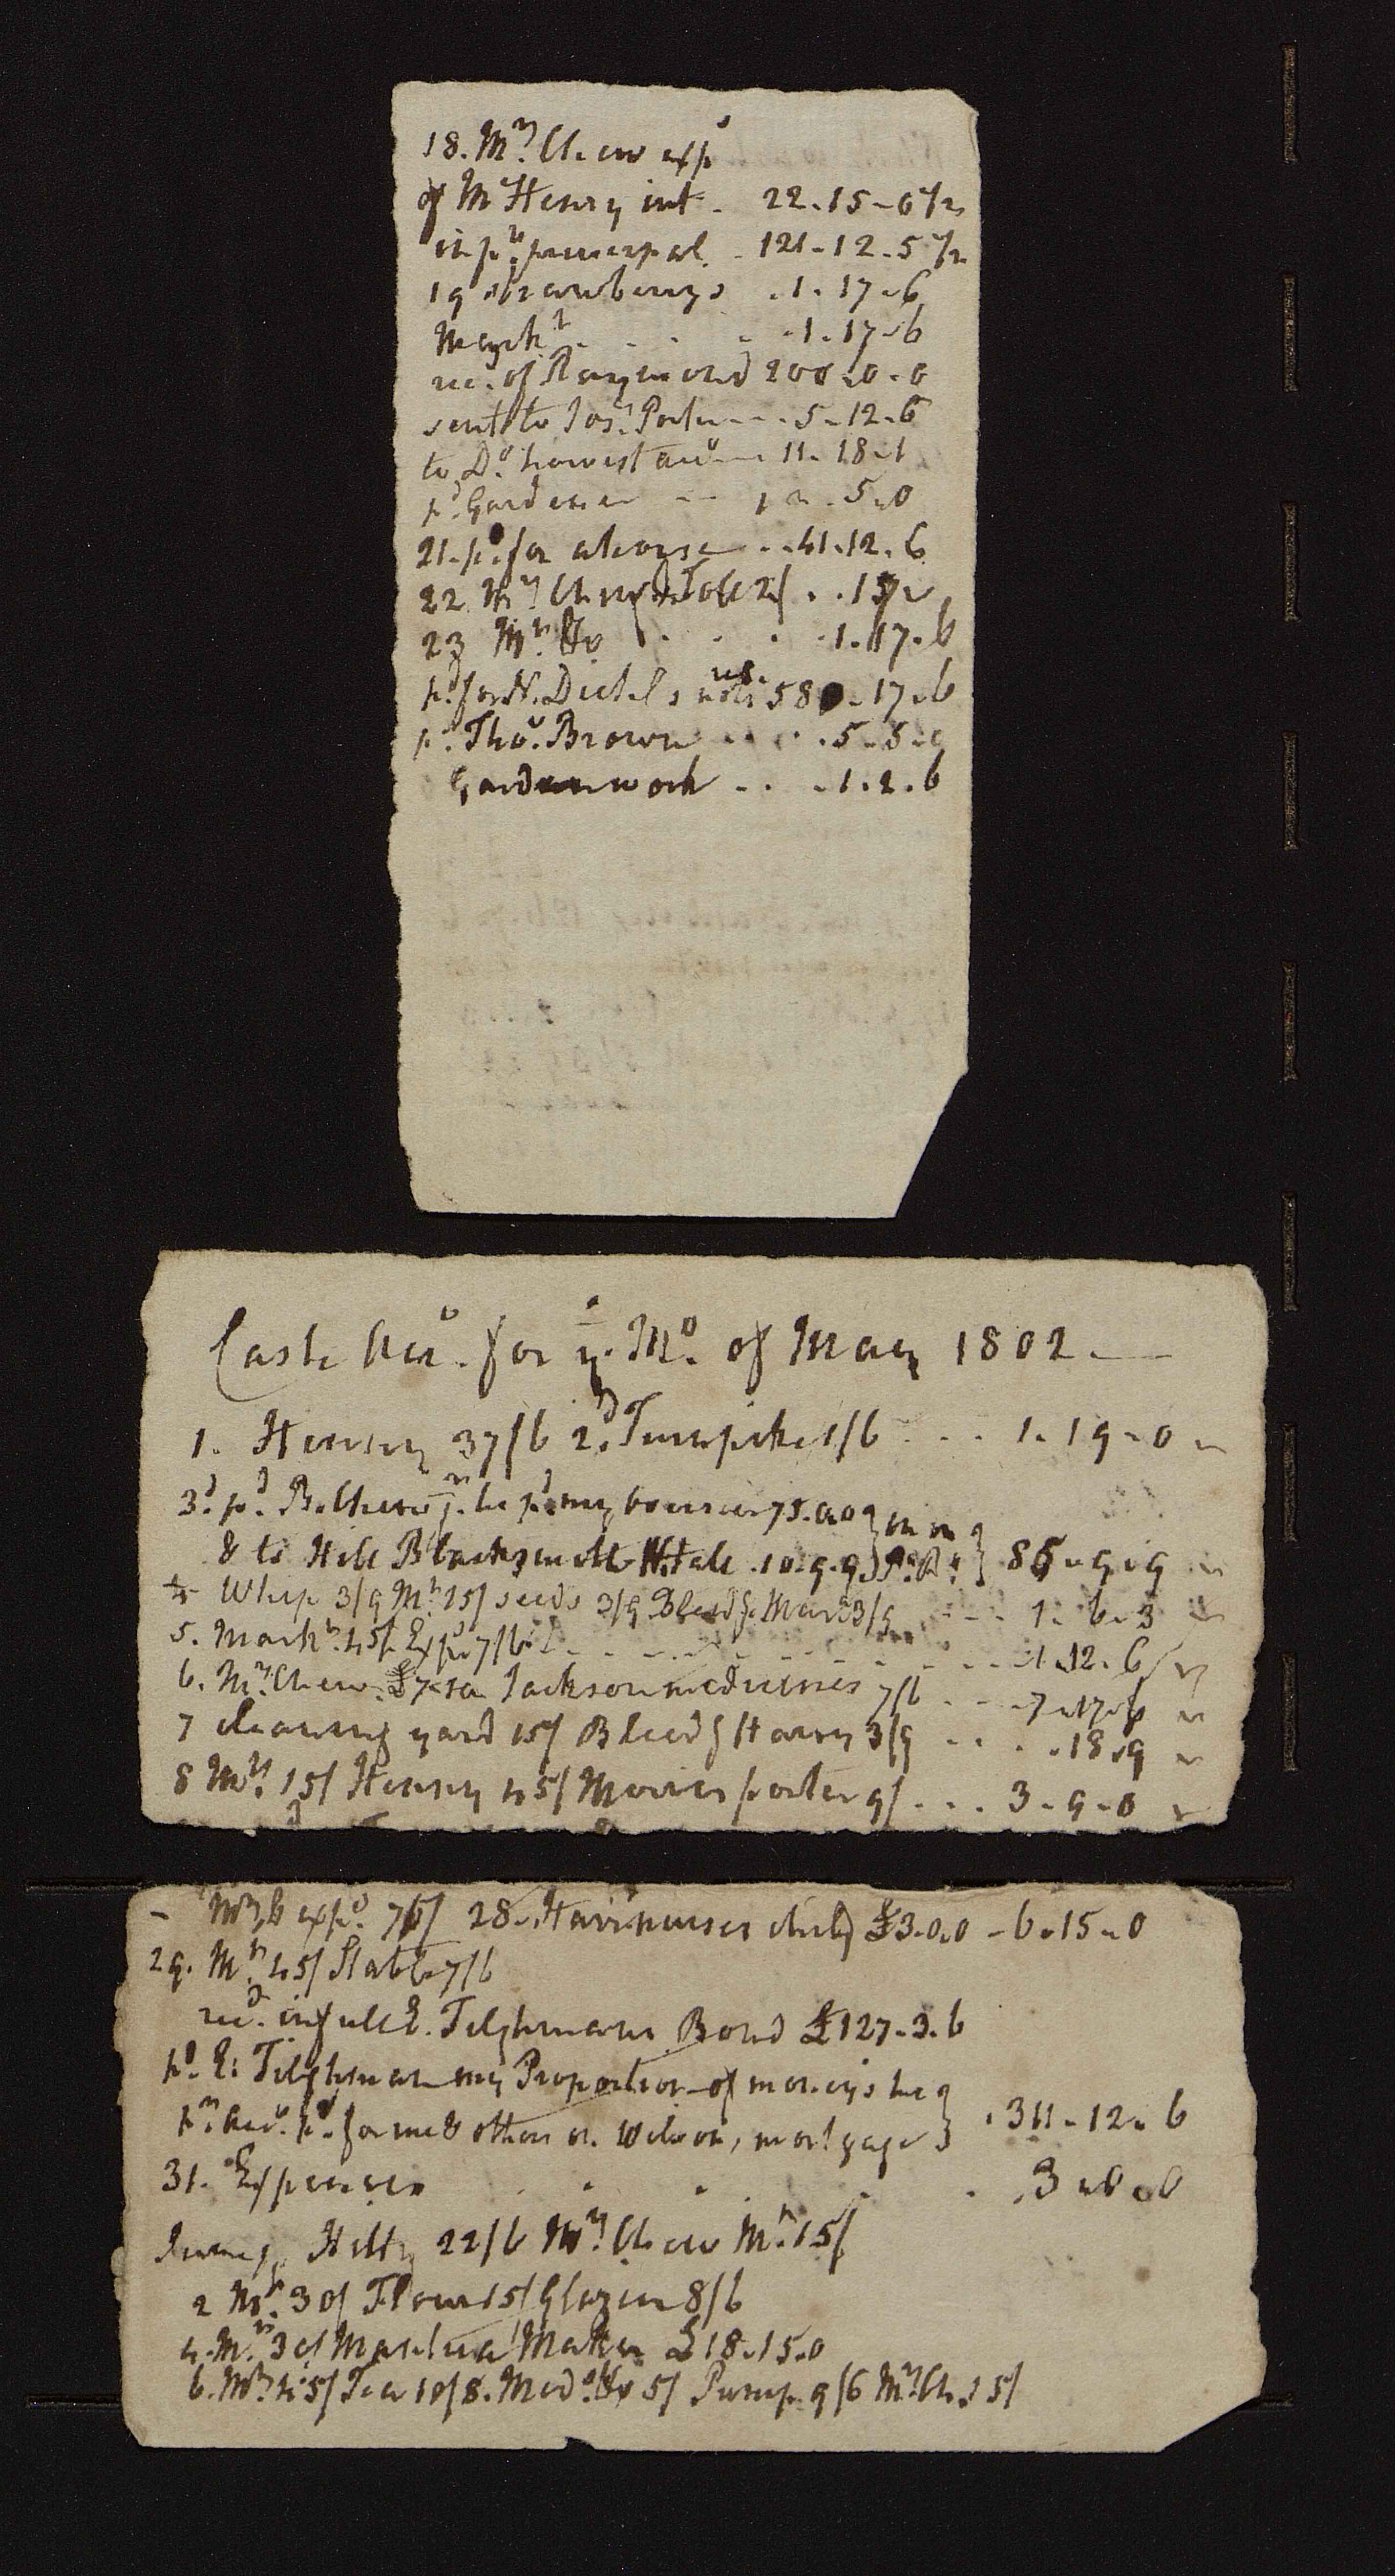 18. Mrs. Chew exps
of McHenry int. 22.15-0 1/2
in pt. principal. 121-12-5 1/2
19 strawberrys .1.17-6
Markt . . . . 1.17-6
rec. of Raymond 200.0.0
sent to Jos. Porter - - . 5-12-6
to Do. harvest acco 11.18.1
pd. Gardener -- 5.0
21. pd. for a horse . . 41.12.6
22 Mrs. Chew 15/
23 Mrs. Do . . . . 1.17.6
pd. for N. Dickl,s note 580.17.6
pd. Tho.s Brown . . . . 5-5-0
Garden work . . . 1.2.6
Cash Acco. for ye. Mo. of May 1802.
1. Henry 37/6 2d. Turnpike 1/6 . . . 1.19-0
3d. pd. B. Chew jr. he pd. my 75.0.0
& to Hill Blacksmith 10.9.9 85.9.9
4 Whip 3/9 Mt. 15/ seeds 3/9 Bleedg. Mare 3/9 . . . 1.6.3
5. Markt. 25/ Exps. 7/6 . . . 1.12.6
6. Mrs. Chew £7.10 Jackson medicines 7/6 . . . 7.17.6
7 cleaning yard 15/ Bleedg Harry 3/9 . . . .18.9
8 Mt. 15/ Henry 45/ porter 9/ . . . 3-9-0
- exps. 75/ 28. £3.0.0 - 6.15.0
29. Mt. 45/ Stable 7/6
recd. in full E. Tilghmans Bond £127.3.6
pd. E. Tilghman my Proportion of moneys he
pr. Acco. pd. for me & others on Wilson,s mortgage 311-12.6
31. Expences . . . . .3
June Hilty 22/6 Mrs. Chew Mt. 15/
2 Mt. 30/ Flour 15/ Glazier 8/6
4. Mt. 30/ Mantua Maker £18.15.0
6. Mt. 45/ Tea 10/8. Med. Do 5/ Pump. 9/6 Mrs. Ch. 15/